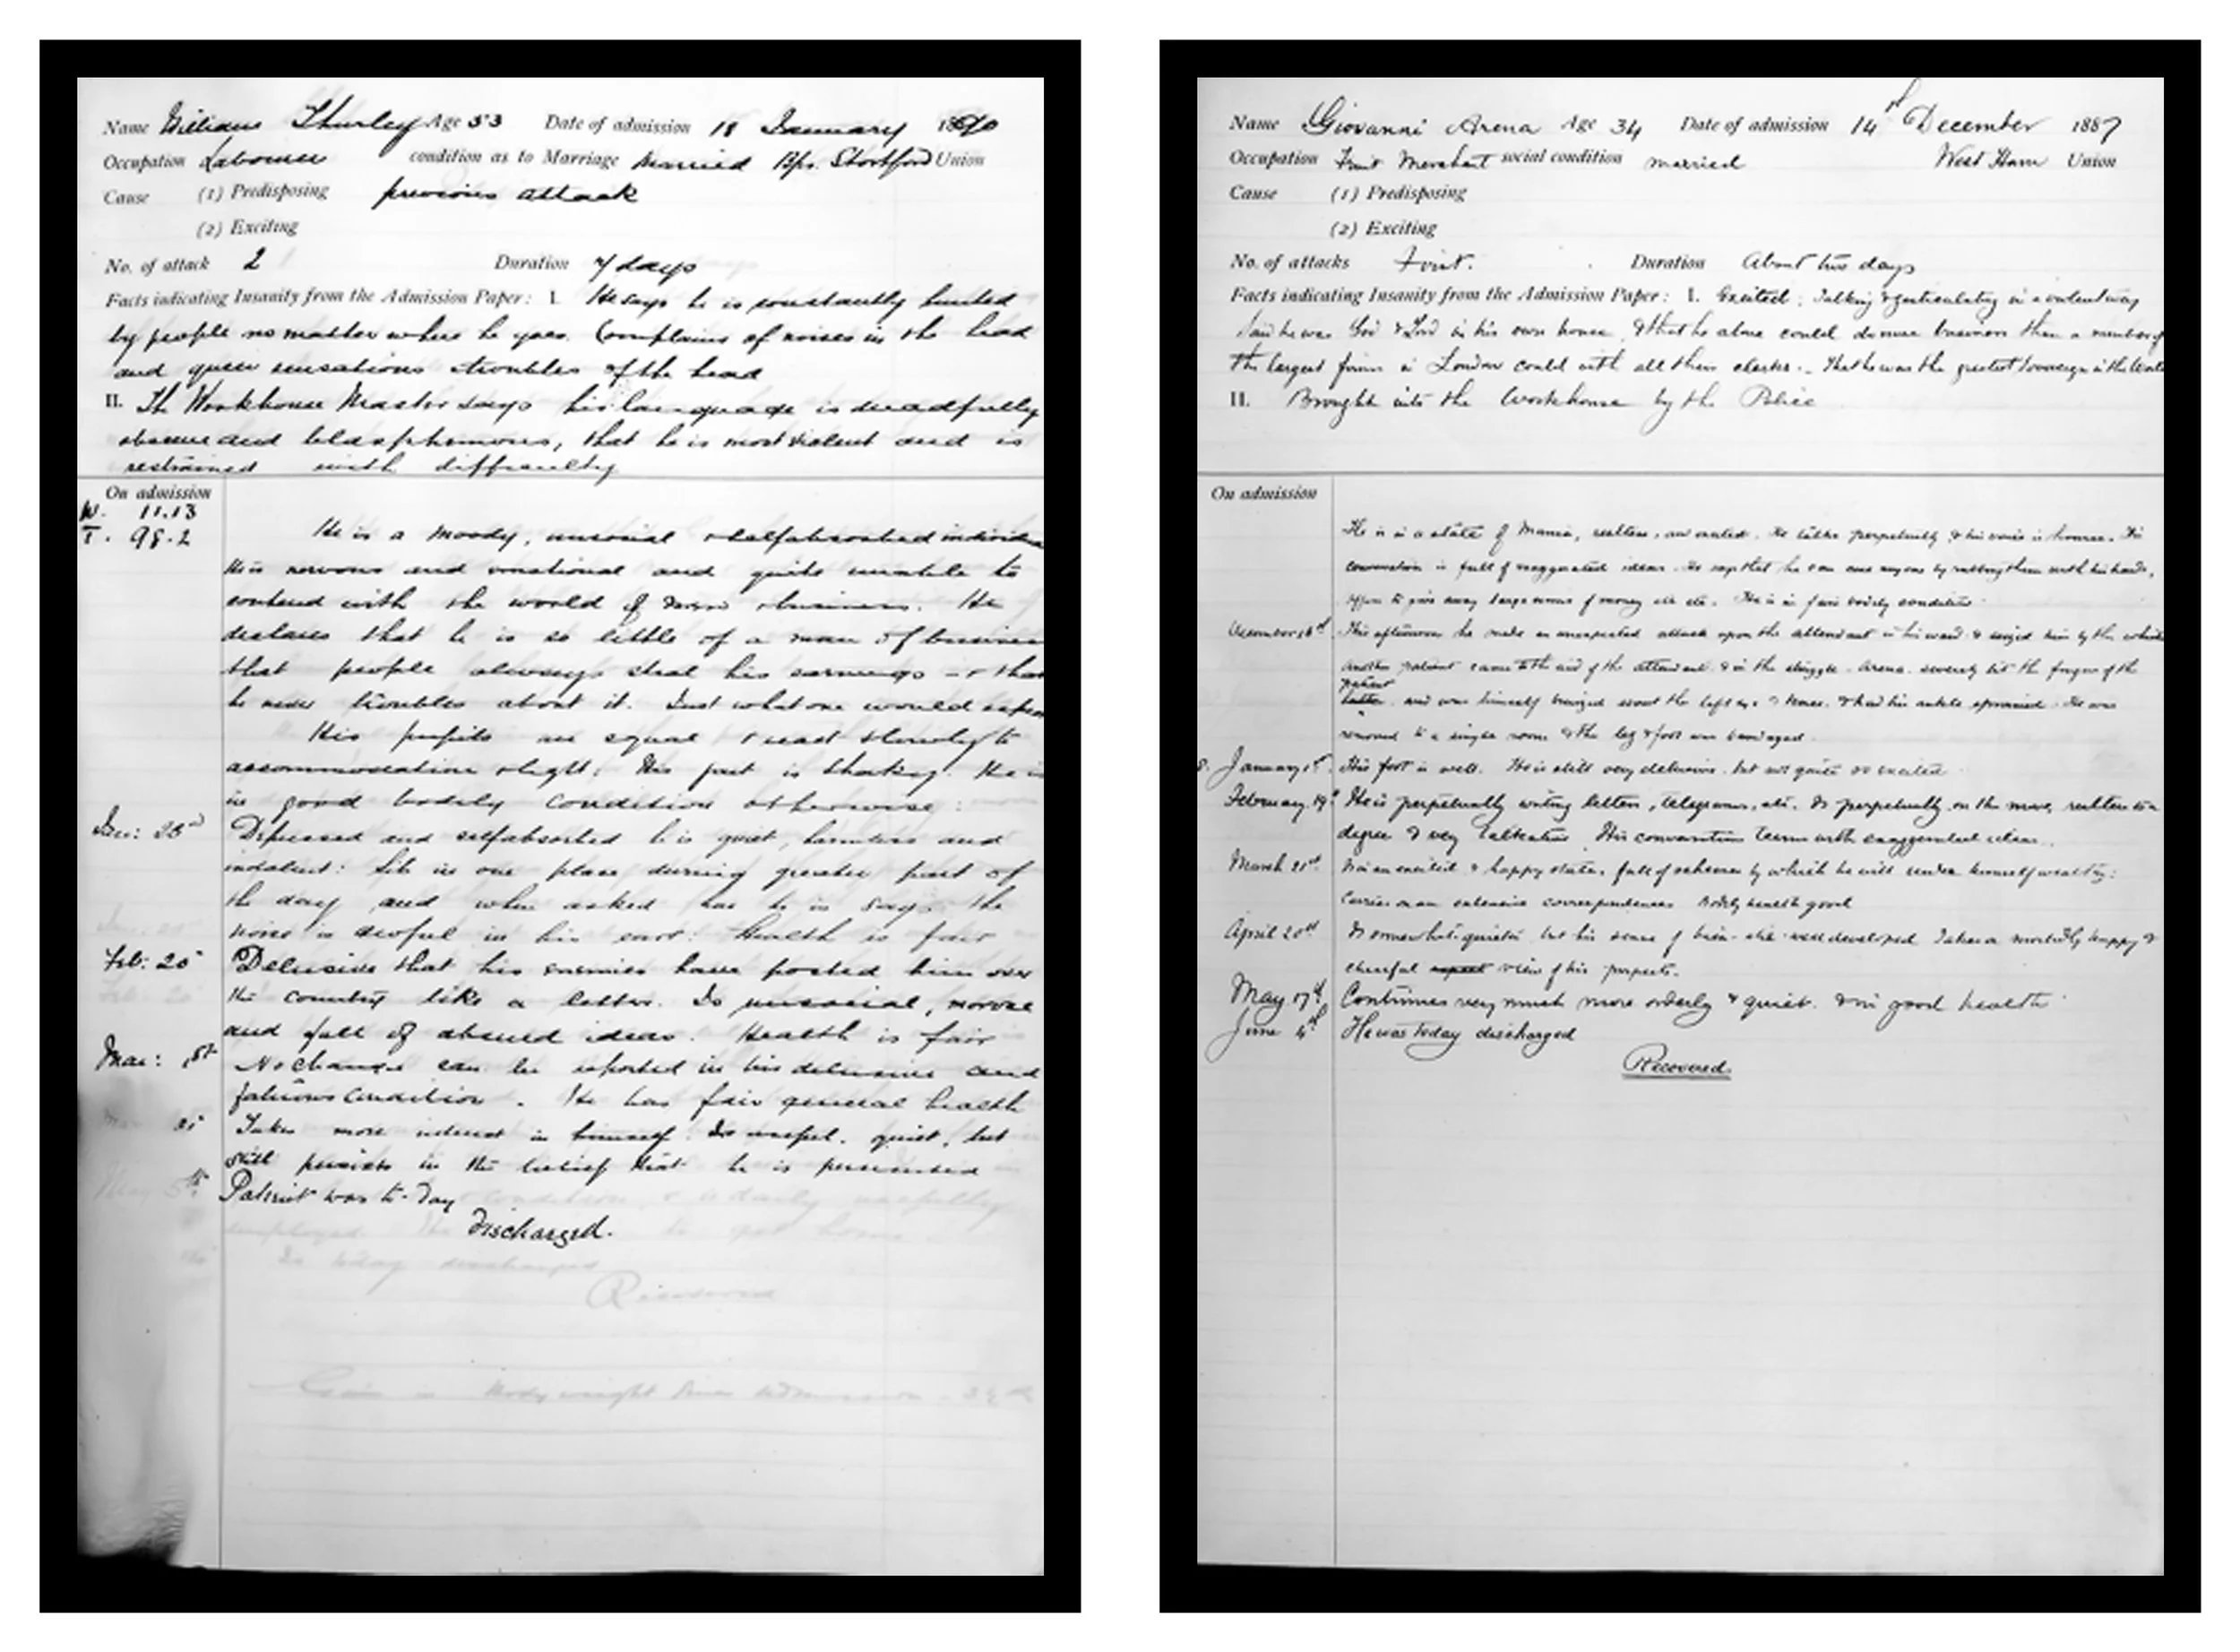 Name William Thurley Age 53 Date of admission 18 January 1890
Occupation Labourer condition as to Marriage Married Bps. Stortford Union
Cause (1) Predisposing previous attack
(2) Exciting
No. of attack 2 Duration 7 days
Facts indicating Insanity from the Admission Paper: I. He says he is constantly hunted
by people no matter where he goes. Complains of noises in the head
and queer sensations & troubles of the head
II. The Workhouse Master says his language is dreadfully
obscene and blasphemous, that he is most violent and is
restrained with difficulty
On admission
W. 11.13
T. 98.2
He is a moody, unsocial & selfabsorbed individual
He is nervous and emotional and quite unable to
contend with the world of business. He
declares that he is so little of a man of business
that people always steal his earnings & that
he never troubles about it. Just what one would expect
His pupils are equal & react slowly to
accommodation & light. His gait is shaking. He is
in good bodily condition otherwise:
Depressed and selfabsorbed he is quiet, harmless and
indolent: Sits in one place during greater part of
the day and when asked how he is says the
noise is awful in his ears: Health is fair
Feb: 20 Delusive that his enemies have posted him over
the country like a letter. Is unsocial, morose
and full of absurd ideas. Health is fair
Mar: 1st No change can be reported in his delusive and
fatuous condition. He has fair general health
Takes more interest in himself. Is useful, quiet, but
still persists in the belief that he is persecuted
Patient was to-day
Discharged.
Is today discharged
Recovered
Gain in Body weight since admission
Name Giovanni Arena Age 34 Date of admission 14 December 1887
Occupation Fruit Merchant social condition married West Ham Union
Cause (1) Predisposing
(2) Exciting
No. of attacks First. Duration About two days
Facts indicating Insanity from the Admission Paper: I. Excited. Talking & gesticulating in a violent way
Said he was God & Lord in his own house & that he alone could do more business than a number of
the largest firms in London could with all their clerks. That he was the greatest Sovereign in the World
II. Brought into the Workhouse by the Police
On admission
He is in a state of Mania, restless, and excited. He talks perpetually & his voice is hoarse. His
conversation is full of exaggerated ideas. He says that he can cure anyone by rubbing them with his hands,
offers to give away large sums of money etc etc. He is in fair bodily condition
December This afternoon he made an unexpected attack upon the attendant in his ward & seized him by the
another patient came to the aid of the attendant & in the struggle Arena severely bit the finger of the
patient
latter and was himself bruised about the left eye & nose & had his ankle sprained. He was
removed to a single room & the leg & foot was bandaged
January 1st. His foot is well. He is still very delusive but not quite so excited
February 19th He is perpetually writing letters, telegrams, etc. Is perpetually on the move, restless to a
degree & very talkative. His conversation teems with exaggerated ideas.
March 21st Is in an excited & happy state, full of schemes by which he will render himself wealthy:
Carries on an extensive correspondence Bodily health good
April 20th Is somewhat quieter but his sense of well developed Takes a morbidly happy &
cheerful aspect view of his prospects.
May 17th Continues very much more orderly & quiet. & in good health
June 4th He was today discharged
Recovered.